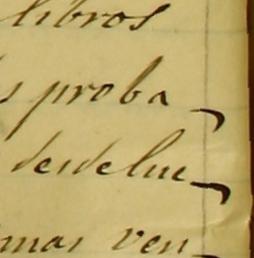 libros
s proba¬
desde lue¬
mas ven¬